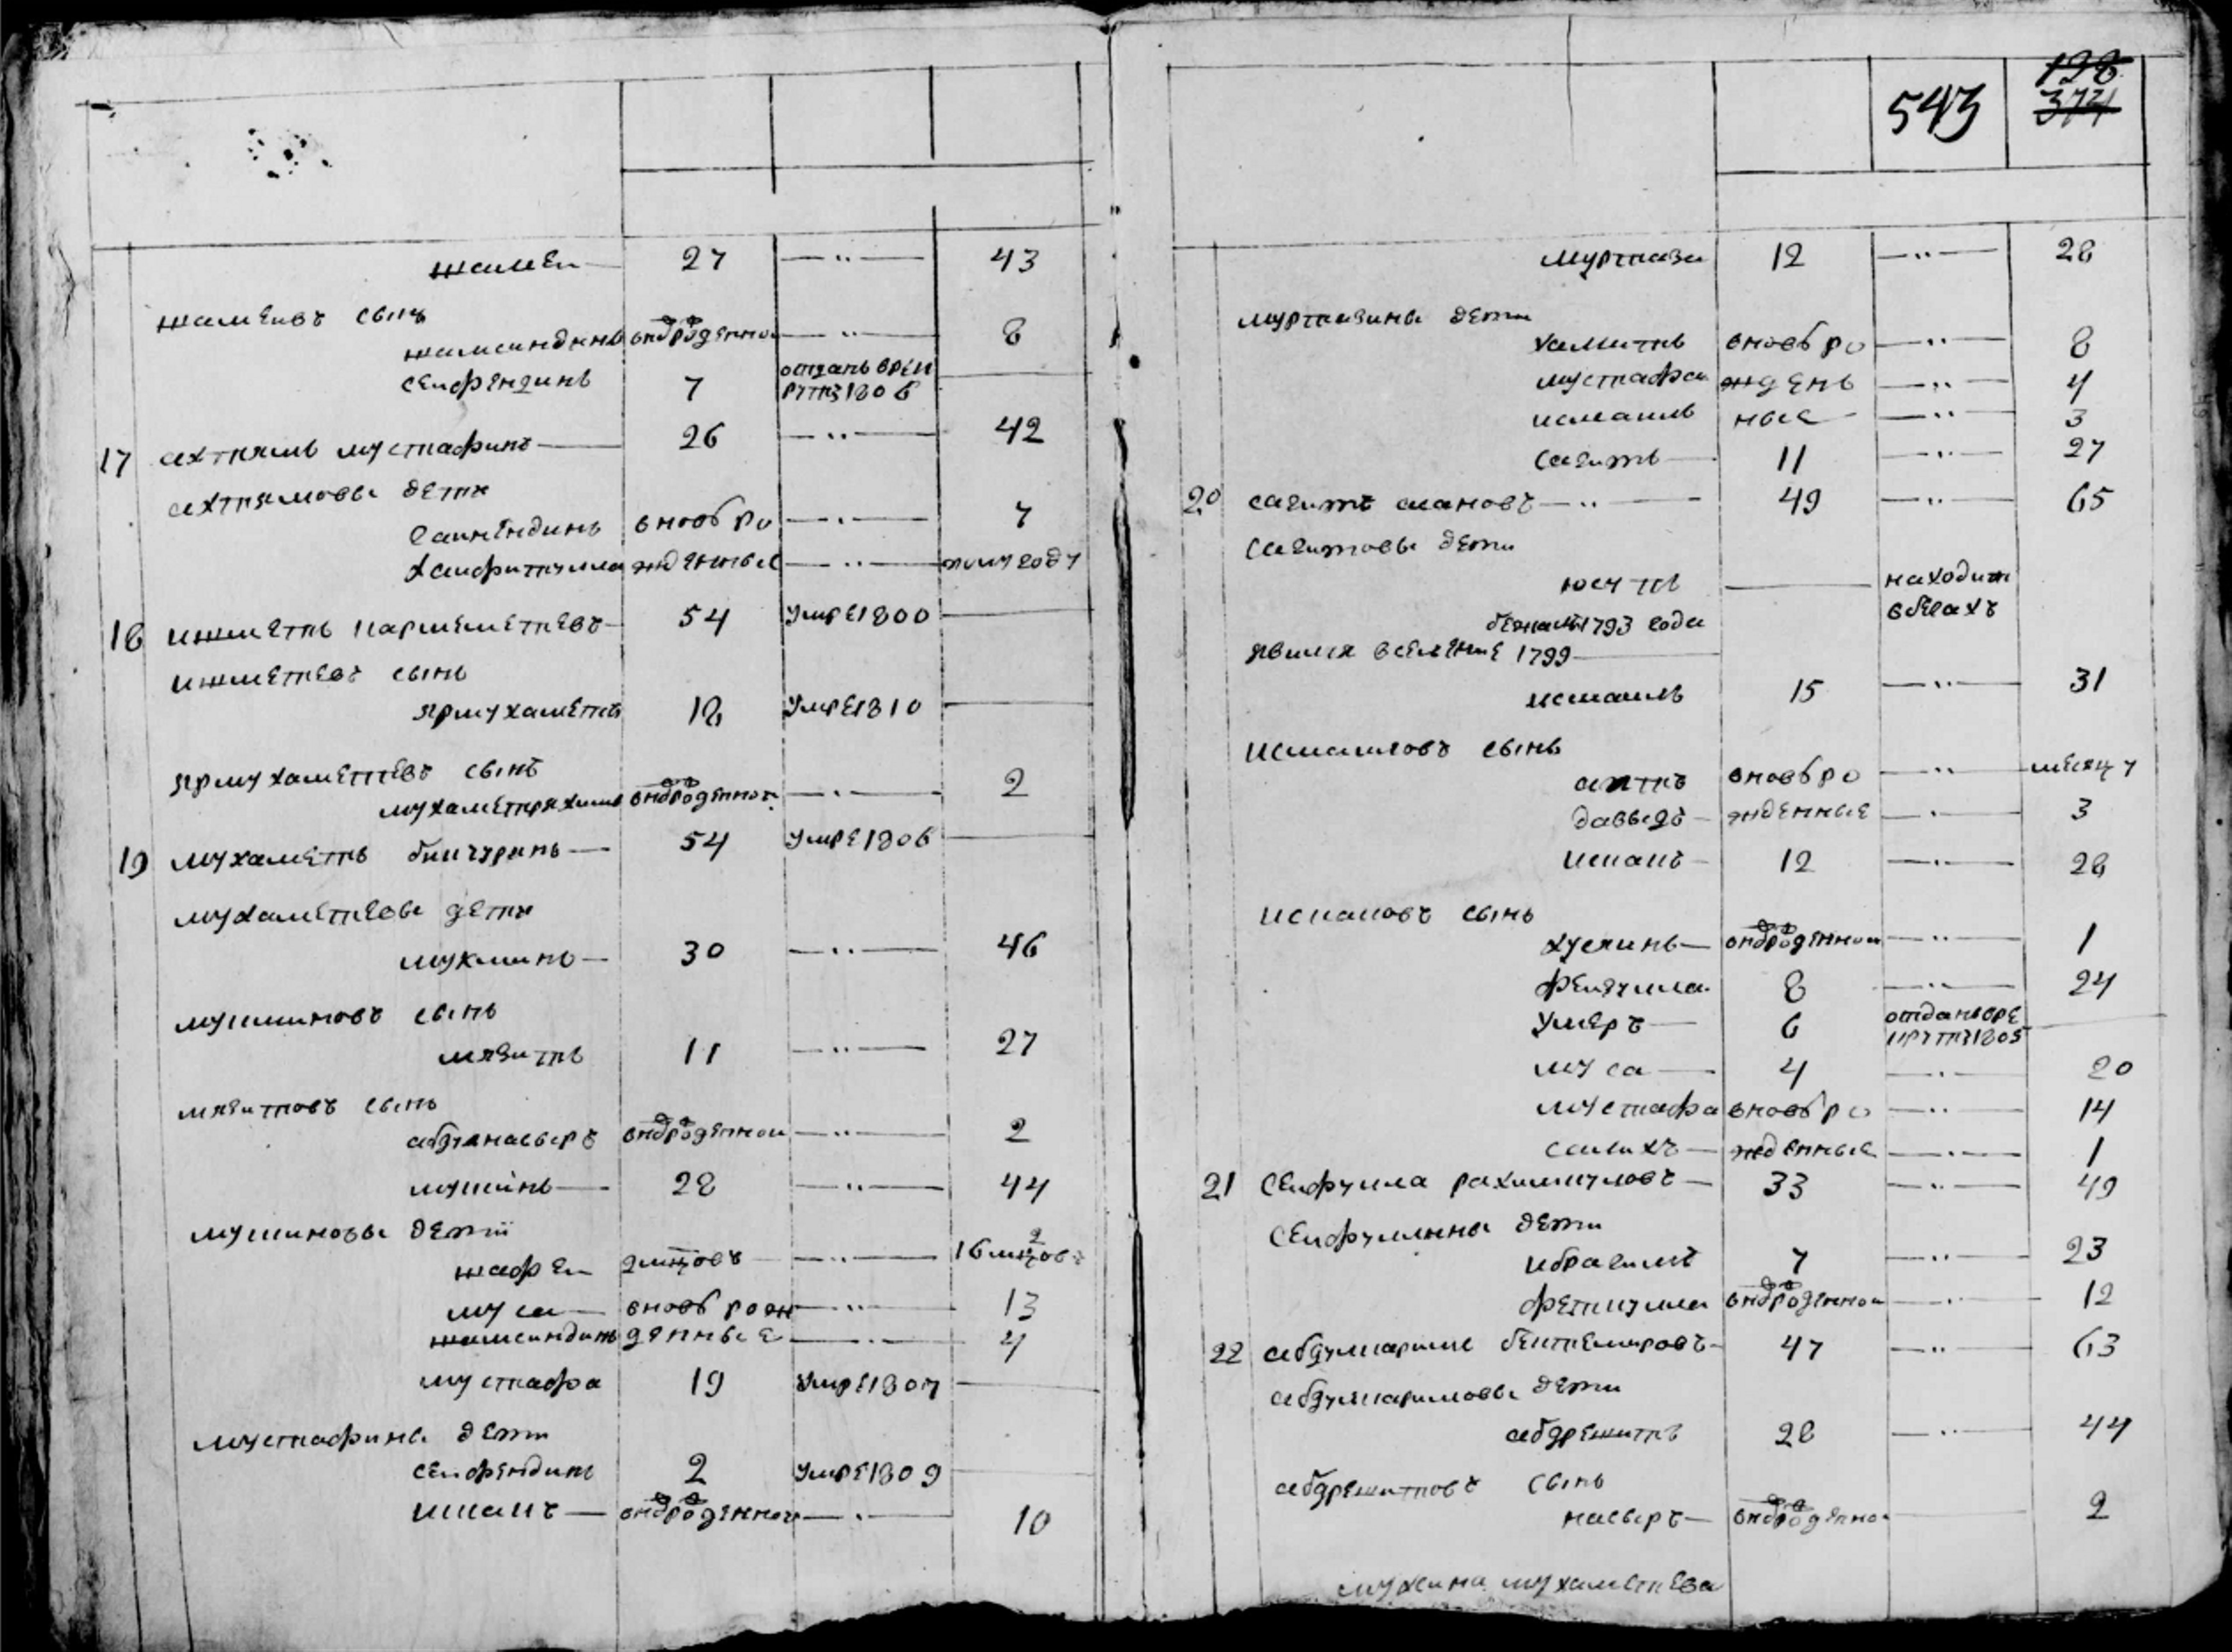 543
128
374
жамеи 27 43
жамеивъ сынъ
жамсиндинъ вновьрожденной 8
сеифендинъ 7 отданъ в рек
руты 1806
17 ахтямъ мустафинъ 26 42
ахтямовы дети
вновь ро 7
хаифитулла жденные полугоду
18 ишметь 54 умре 1800
ишметевъ сынъ
ярмухаметь 18 умре 1810
ярмухаметевъ сынъ
мухаметряхимъ вновьрожденной 2
19 мухаметь бикчуринъ 54 умре 1806
мухаметевы дети
мукминъ 30 46
мукминовъ сынъ
мязитъ 11 27
мязитовъ сынъ
абдулнасыръ вновьрожденной 2
мушинъ 28 44
мушиновы дети
жафеи
муса вновь рож 13
жамсиндинъ денные 4
мустафа 19 умре 1807
мустафины дети
сеифендинъ 2 умре 1809
исхакъ вновьрожденной 10
муртаза 12 28
муртазины дети
хамитъ вновь ро 8
мустафа жден 4
исмаилъ ные 3
сагитъ 11 27
20 сагитъ амановъ 49 65
сагитовы дети
юсупъ находит
бежалъ 1793 года в бегахъ
явился в селение 1799
исмаилъ 15 31
исмаиловъ сынъ
вновь ро месяцу
давыдъ жденные 3
исхакъ 12 28
исхаковъ сынъ
хусяинъ вновьрожденной 1
феизулла 8 24
умеръ 6 отданъ в ре
круты 1805
муса 4 20
мустафа вновь ро 14
салихъ жденные 1
21 сеифулла рахманкуловъ 33 49
сеифуллины дети
ибрагимъ 7 23
феткулла вновьрожденной 12
22 абдулкаримъ бектемировъ 47 63
абдулкаримовы дети
абдрешитъ 28 44
абдрешитовъ сынъ
насыръ вновьрожденной 2
мухаметева